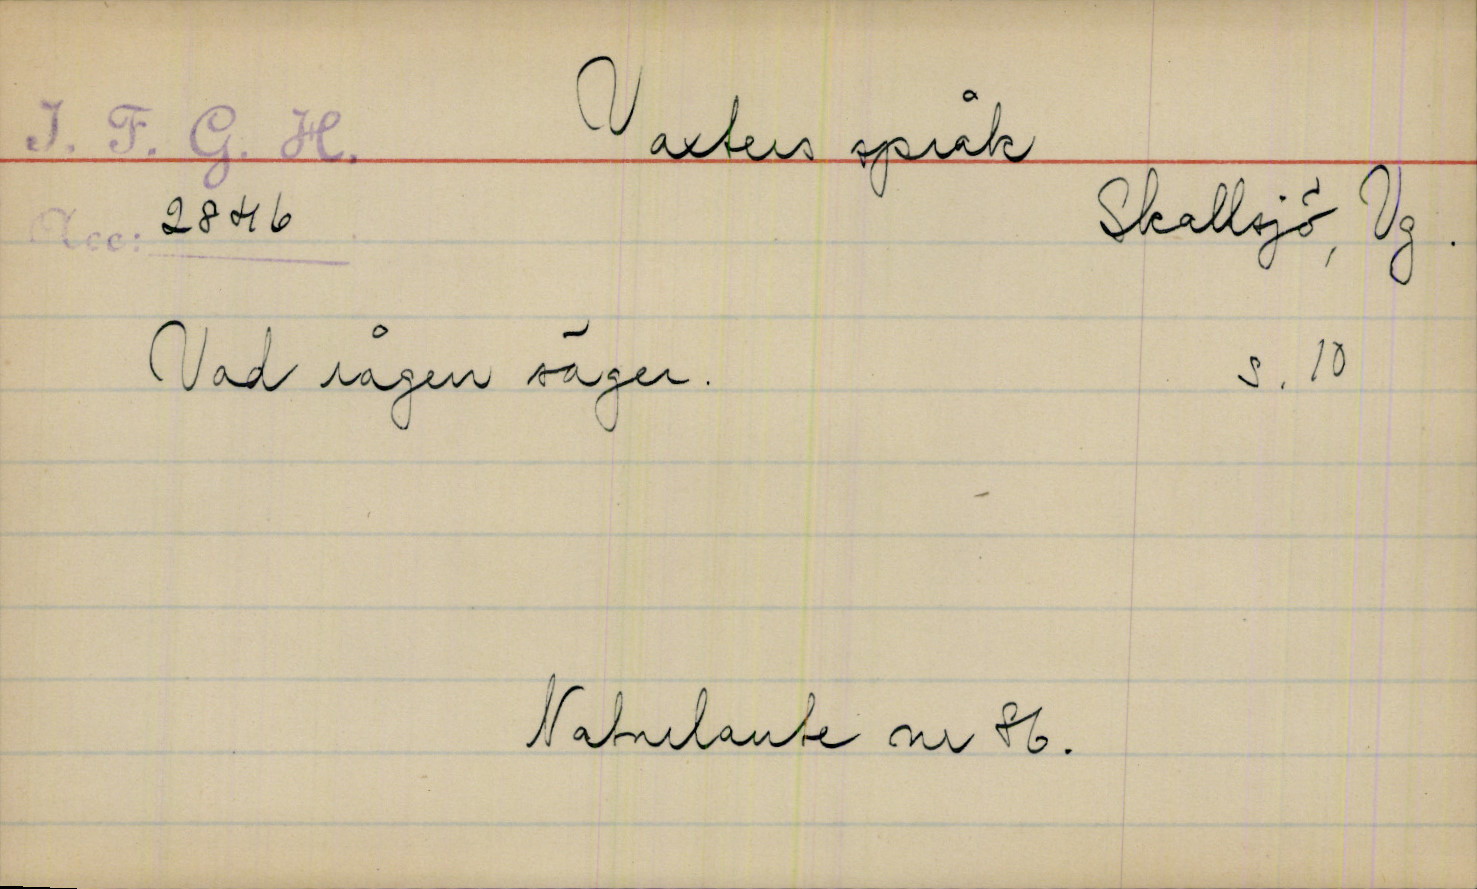 Vaxters språk
I. F. G. H.
Acc: 2846
Skallsjö, Vg.
Vad rågen säger. s. 10
Naturlaute nr 86.